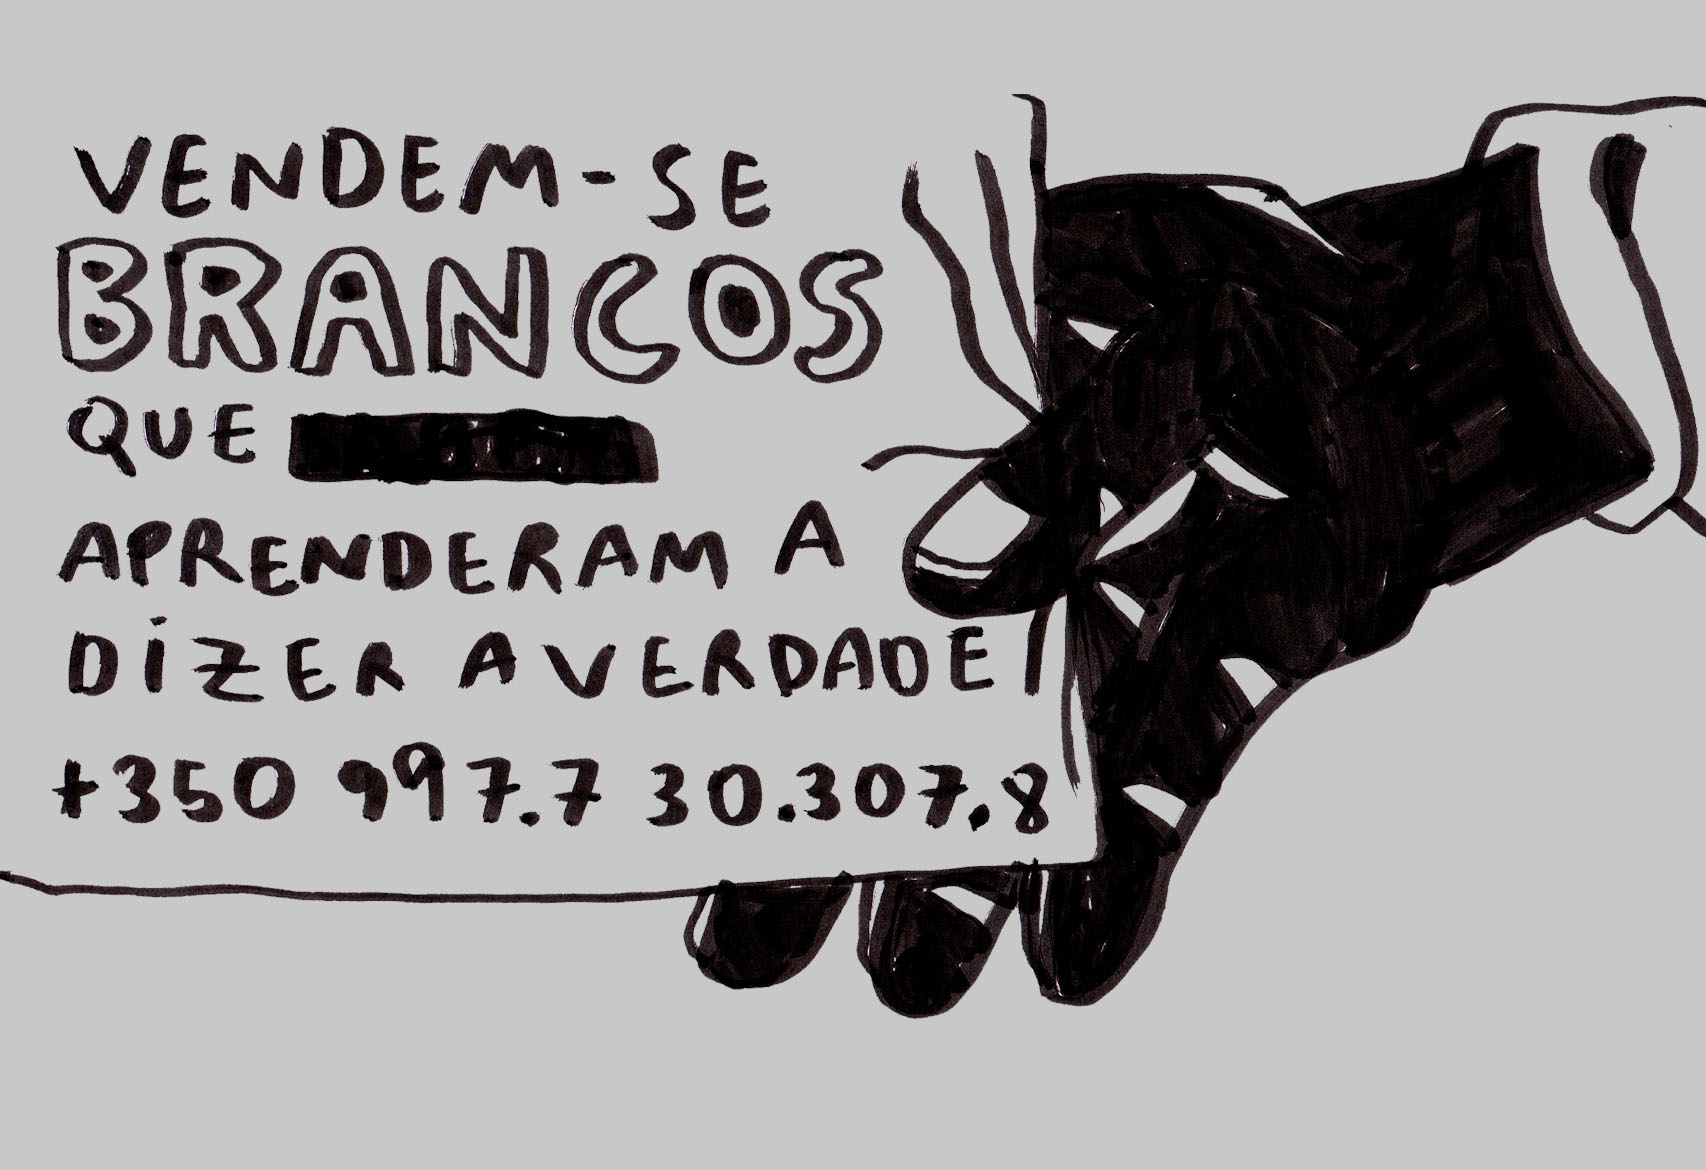 VENDEM-SE
BRANCOS
QUE
APRENDERAM A
DIZER A VERDADE
+350 997.7 30.307.8